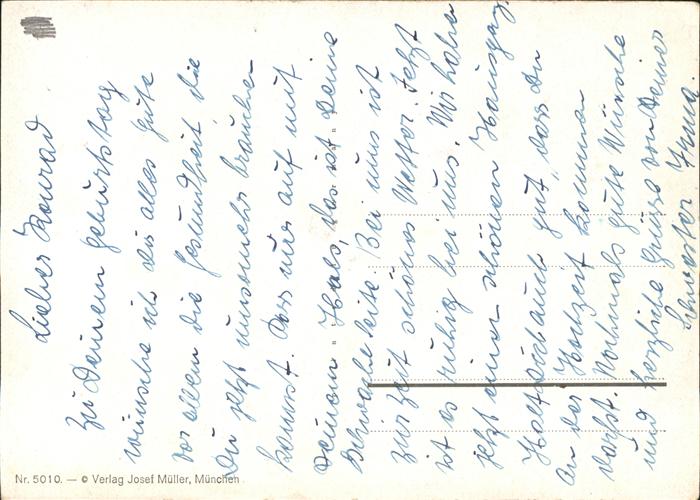 Lieber Konrad
Zu Deinem geburtstag
wünsche ich dir alles gute
vor allem die gesundheit, die
Du jetzt umsomehr brauchen
kannst. Pass nur auf mit
Deinem Hals, das ist Deine
Schwache seite. Bei uns ist
zur zeit schönes Wetter. Jetzt
ist es ruhig bei uns. Wir haben
jetzt einen schönen Hausgang
Halt Dich auch gut, dass Du
an der Hochzeit kommen
darfst. Nochmals gute Wünsche
und herzliche grüsse von Deiner
Schwester
Nr. 5010. — © Verlag Josef Müller, München